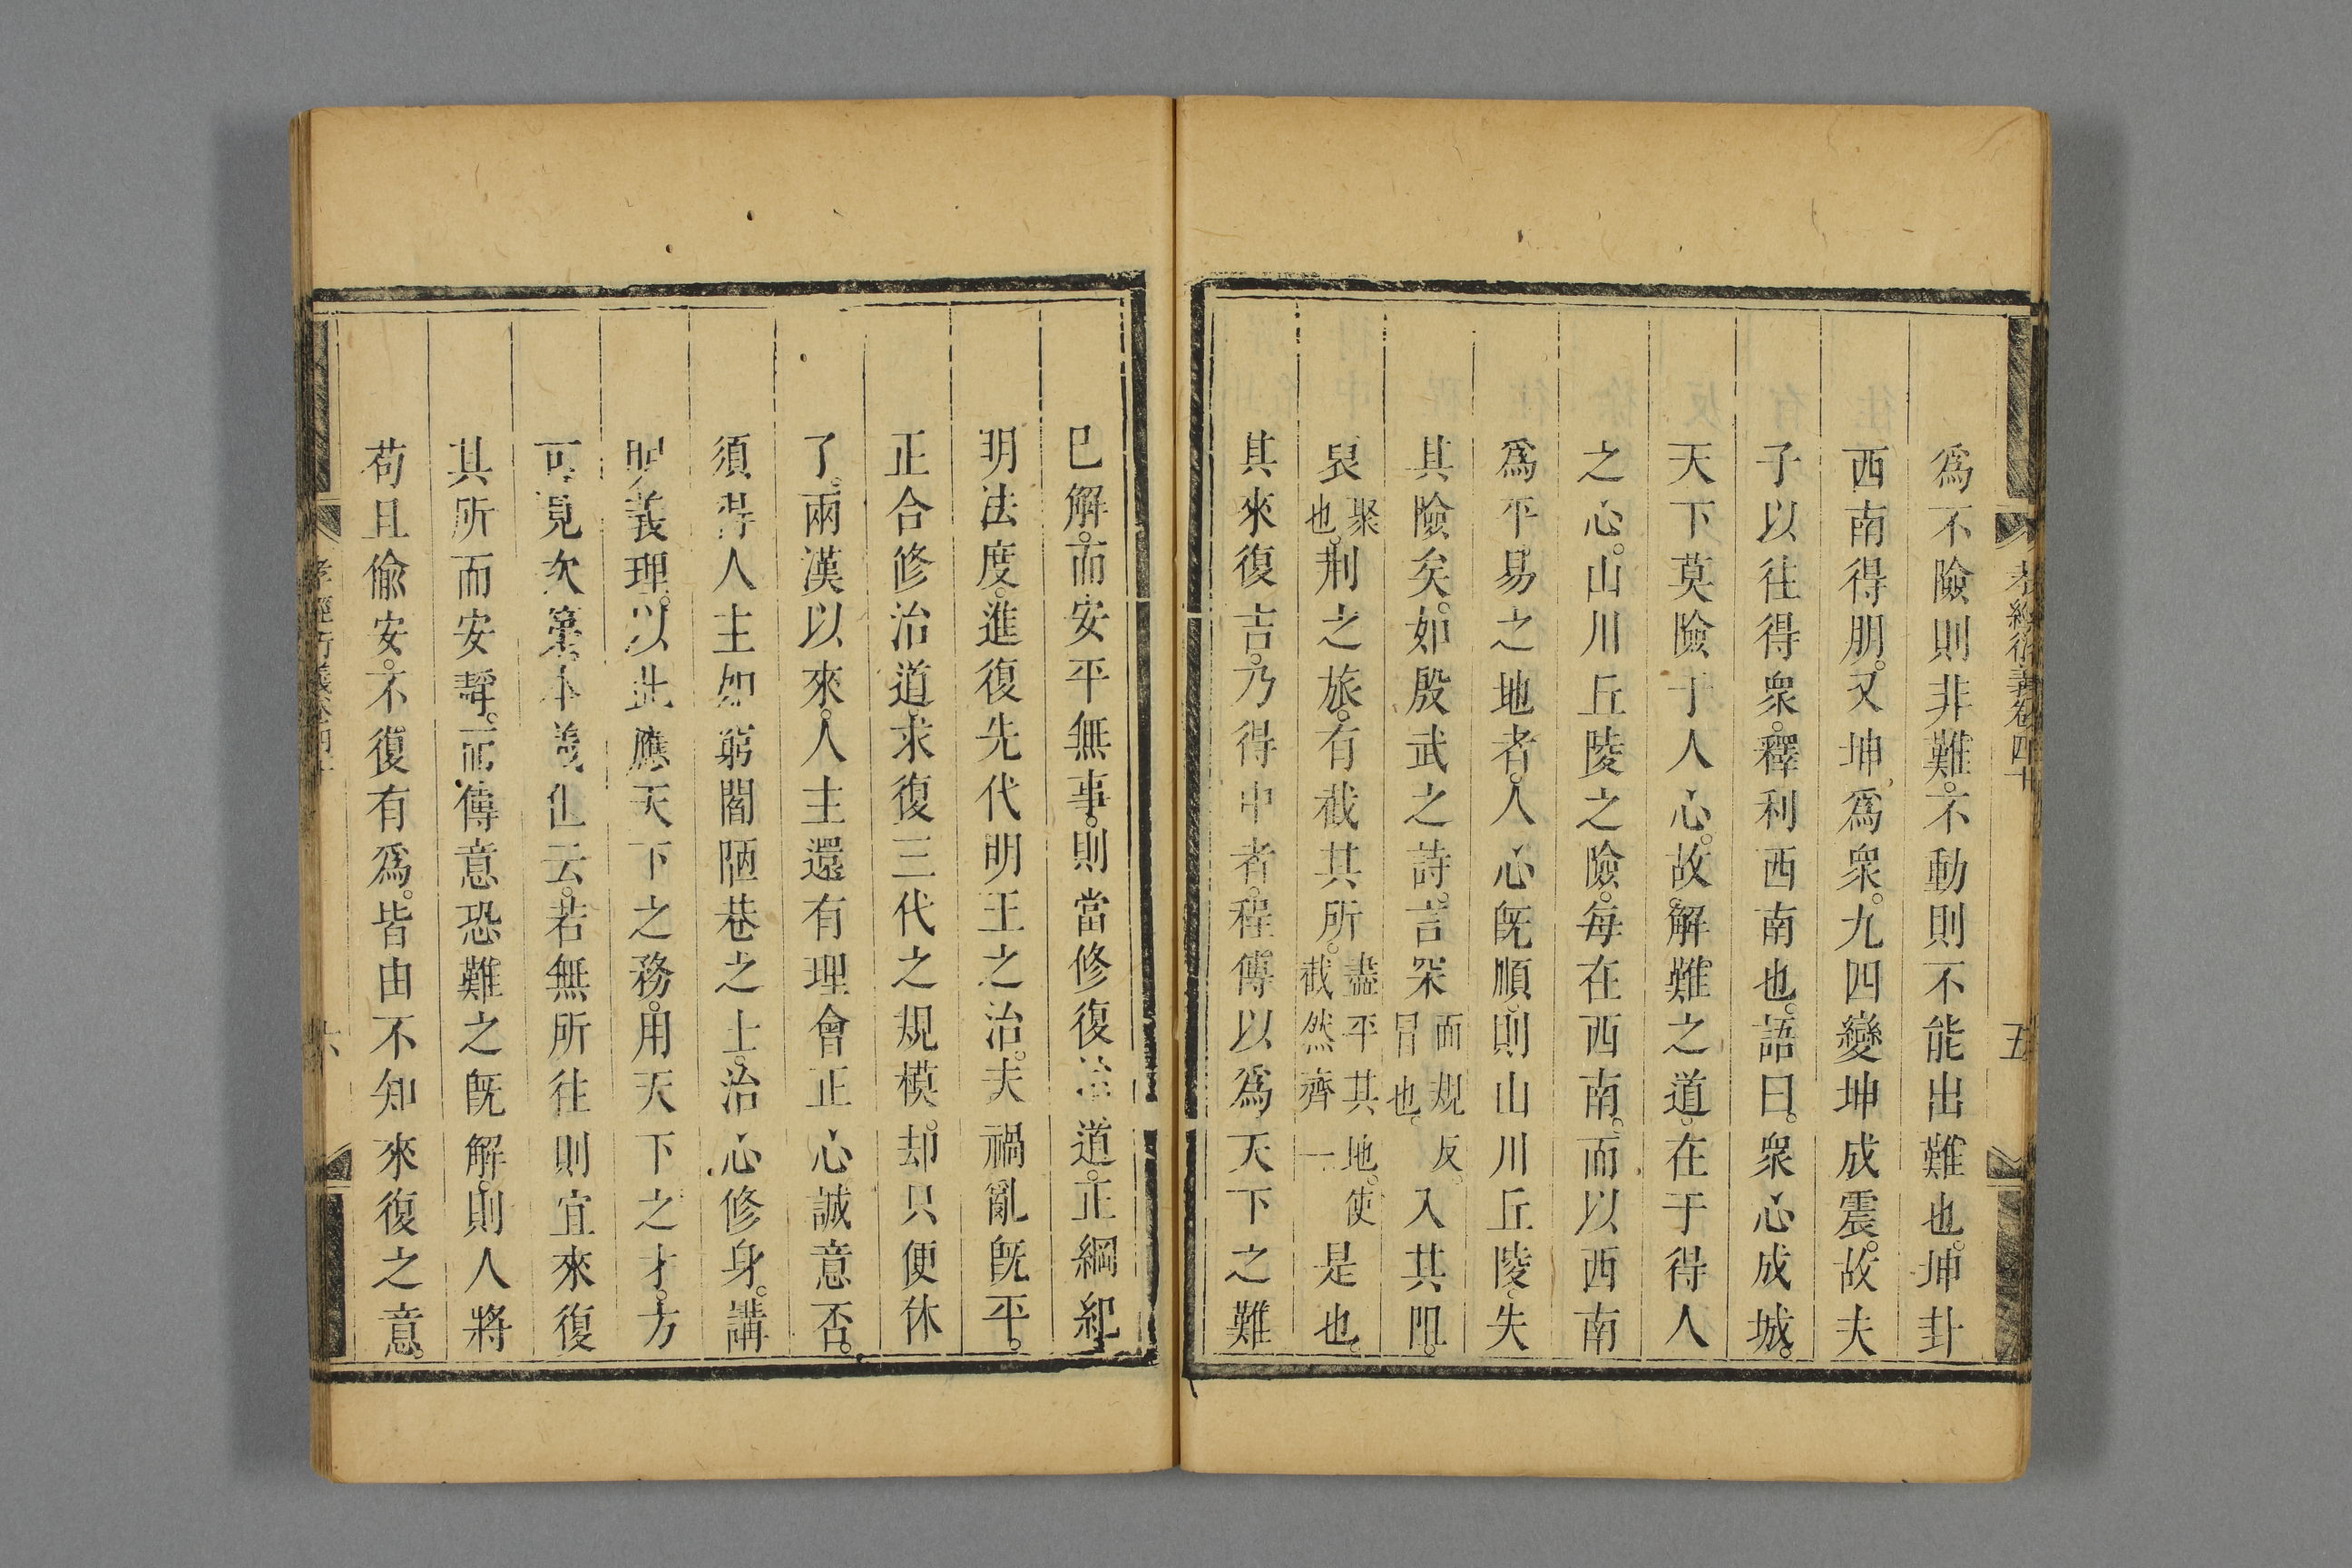 孝經衍義卷四十 五
爲不險則非難。不動則不能出難也。坤卦
西南得朋。又坤爲衆。九四變坤成震。故夫
子以往得衆。釋利西南也。語曰。衆心成城。
天下莫險于人心。故解難之道。在于得人
之心。山川丘陵之險。每在西南。而以西南
爲平易之地者。人心旣順。則山川丘陵。失
其險矣。如殷武之詩。言罙冒也。面規反。入其阻。
裒聚也。荆之旅。有截其所。盡平其地。使截然齊一 是也。
其來復吉。乃得中者。程傳以爲天下之難
已解。而安平無事。則當修復治道。正綱紀
明法度。進復先代明王之治。夫禍亂旣平。
正合修治道。求復三代之規模。却只便休
了。兩漢以來。人主還有理會正心誠意否。
須得人主如窮閻陋巷之士。治心修身。講
明義理。以此應天下之務。用天下之才。方
可見次第。本義但云。若無所往則宜來復
其所而安靜。而傳意恐難之旣解。則人將
苟且偷安。不復有爲。皆由不知來復之意。
孝經衍義卷四十 六